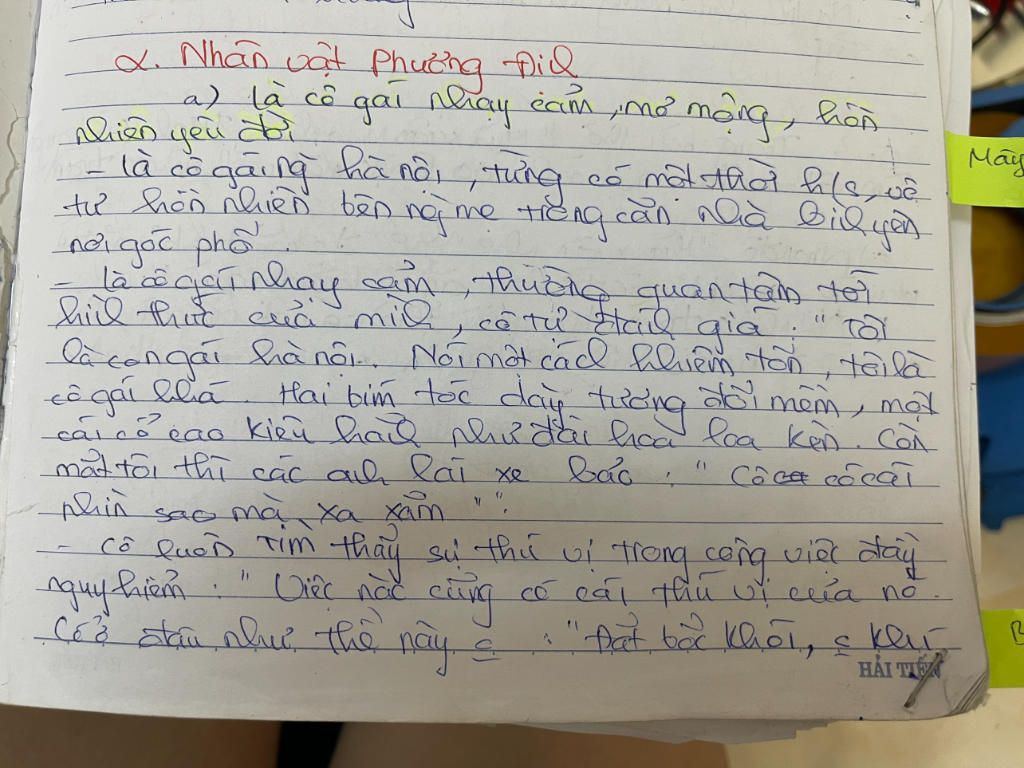 2. Nhân vật Phương Định
a) là cô gái nhạy cảm, mơ mộng, hồn
nhiên yêu đời
- là cô gái ng hà nội, từng có một thời h/s, vô
tư hồn nhiên bên ng mẹ trong căn nhà bình yên
nơi góc phố.
- là cô gái nhạy cảm, thường quan tâm tới
hình thức của mình, cô tự đánh giá: "Tôi
là con gái hà nội. Nói một cách khiêm tốn, tôi là
cô gái khá. Hai bím tóc dày, tương đối mềm, một
cái cổ cao kiêu hãnh như đài hoa loa kèn. Còn
mắt tôi thì các anh lái xe bảo: "Cô có cái
nhìn sao mà xa xăm"".
- Cô luôn tìm thấy sự thú vị trong công việc đầy
nguy hiểm: "Việc nào cũng có cái thú vị của nó.
Có ở đâu như thế này c: "Đất bốc khói, c khí
HẢI TIẾN
Mây
B